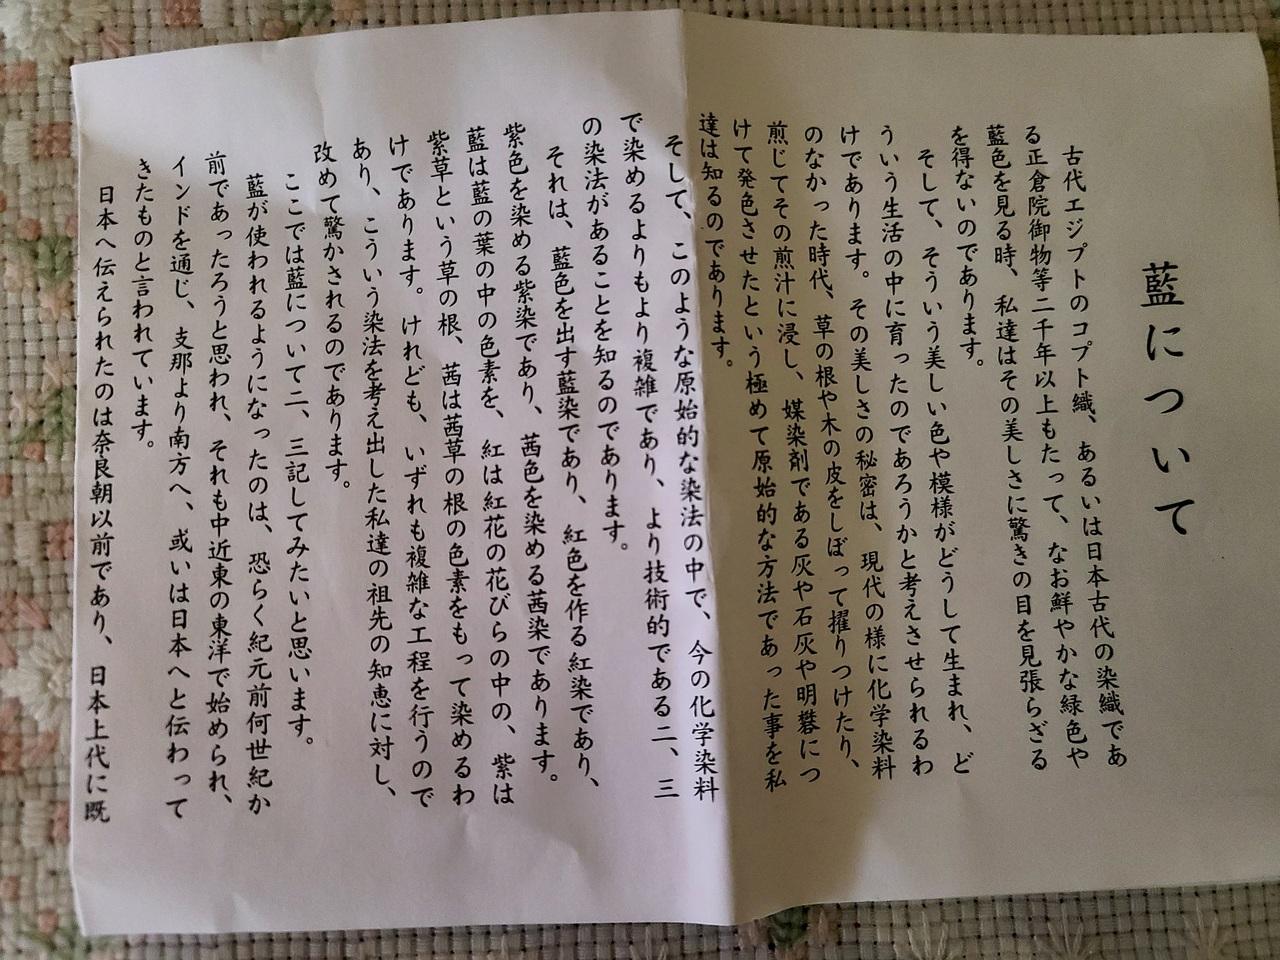 藍について
古代エジプトのコプト織、あるいは日本古代の染織であ
る正倉院御物等二千年以上もたって、なお鮮やかな緑色や
藍色を見る時、私達はその美しさに驚きの目を見張らざる
を得ないのであります。
そして、そういう美しい色や模様がどうして生まれ、ど
ういう生活の中に育ったのであろうかと考えさせられるわ
けであります。その美しさの秘密は、現代の様に化学染料
のなかった時代、草の根や木の皮をしぼって擢りつけたり、
煎じてその煎汁に浸し、媒染剤である灰や石灰や明礬につ
けて発色させたという極めて原始的な方法であった事を私
達は知るのであります。
そして、このような原始的な染法の中で、今の化学染料
で染めるよりもより複雑であり、より技術的である二、三
の染法があることを知るのであります。
それは、藍色を出す藍染であり、紅色を作る紅染であり、
紫色を染める紫染であり、茜色を染める茜染であります。
藍は藍の葉の中の色素を、紅は紅花の花びらの中の、紫は
紫草という草の根、茜は茜草の根の色素をもって染めるわ
けであります。けれども、いずれも複雑な工程を行うので
あり、こういう染法を考え出した私達の祖先の知恵に対し、
改めて驚かされるのであります。
ここでは藍について二、三記してみたいと思います。
藍が使われるようになったのは、恐らく紀元前何世紀か
前であったろうと思われ、それも中近東の東洋で始められ、
インドを通じ、支那より南方へ、或いは日本へと伝わって
きたものと言われています。
日本へ伝えられたのは奈良朝以前であり、日本上代に既